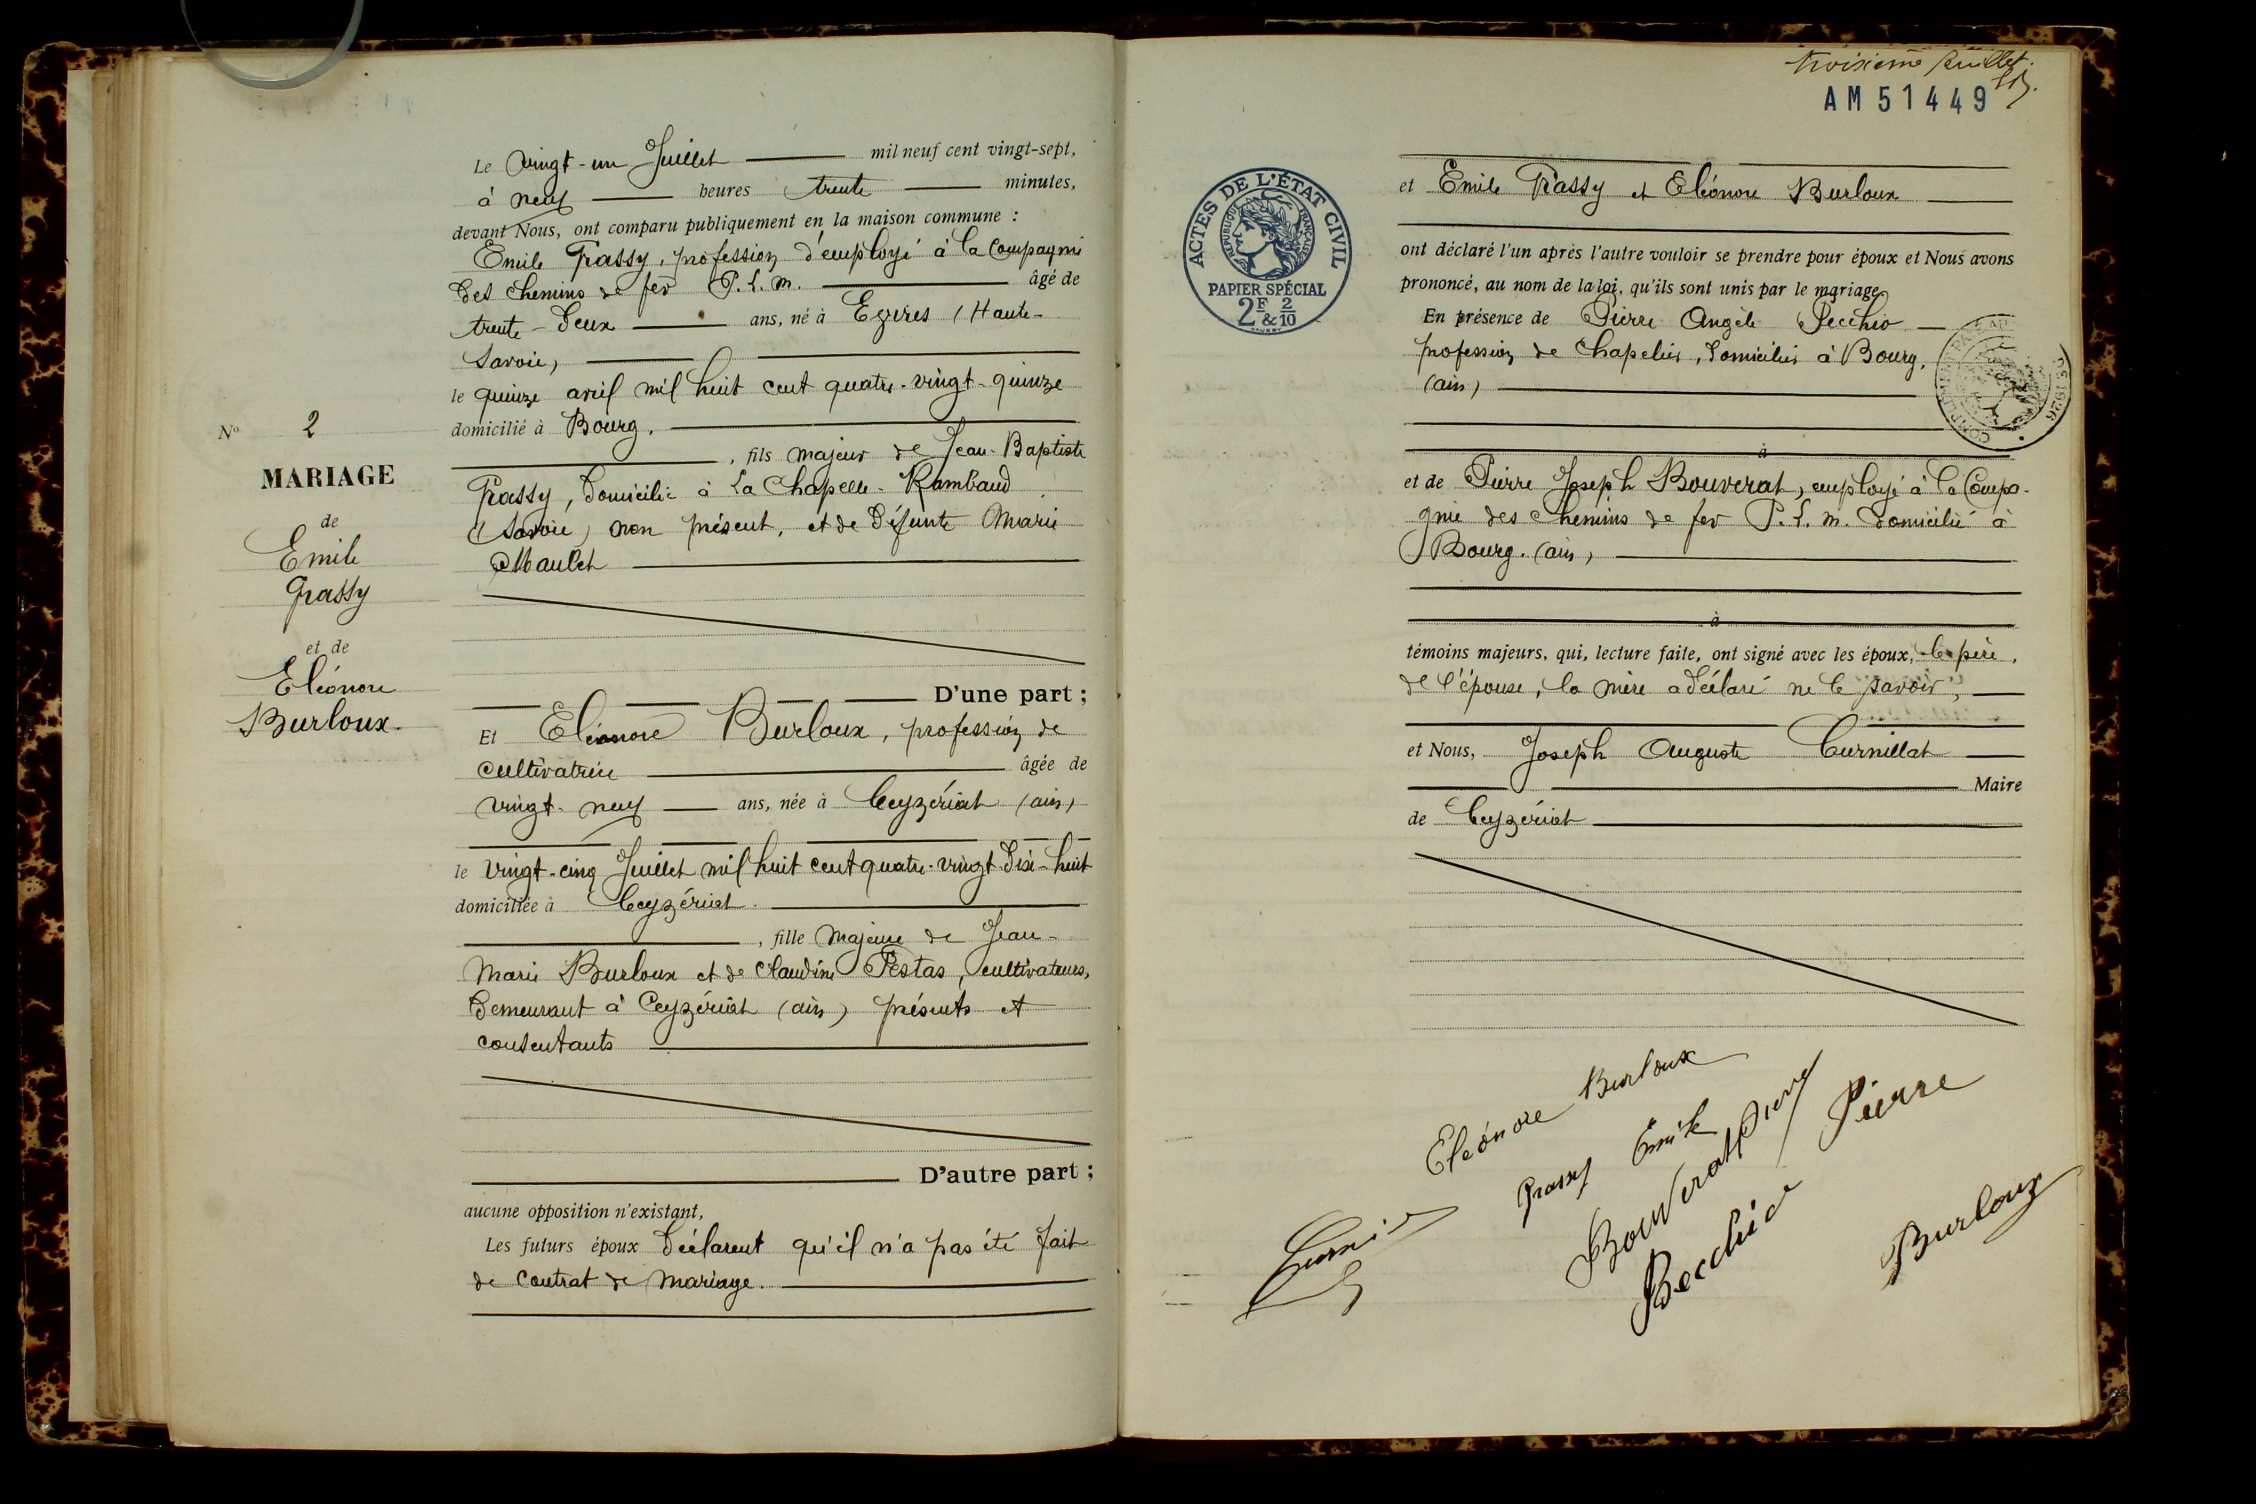 Le vingt-un Juillet mil neuf cent vingt-sept,
à neuf heures trente minutes,
devant Nous, ont comparu publiquement en la maison commune :
Emile Grassy, profession d'employé à la Compagnie
des chemins de fer P.L.M. âgé de
trente-deux ans, né à Egires (Haute-
Savoie)
le quinze avril mil huit cent quatre-vingt-quinze
domicilié à Bourg.
, fils majeur de Jean-Baptiste
Grassy, domicilié à La Chapelle-Rambaud
(Savoie) non présent, et de défunte Marie
Maulet
N° 2
MARIAGE
de
Emile
Grassy
et de
Eléonore
Burloux.
D'une part ;
Et Eléonore Burloux, profession de
cultivatrice âgée de
vingt-neuf ans, née à Ceyzériat (ain)
le vingt-cinq Juillet mil huit cent quatre-vingt-dix-huit
domiciliée à Ceyzériat.
, fille majeure de Jean-
Marie Burloux et de Claudine Pestas, cultivateurs,
demeurant à Ceyzériat (ain) présents et
consentants
D'autre part ;
aucune opposition n'existant,
Les futurs époux déclarent qu'il n'a pas été fait
de contrat de mariage.
troisième feuillet.
AM 51449
ACTES DE L'ÉTAT CIVIL
RÉPUBLIQUE FRANÇAISE
PAPIER SPÉCIAL
2F & 2/10
et Emile Grassy et Eléonore Burloux
ont déclaré l'un après l'autre vouloir se prendre pour époux et Nous avons
prononcé, au nom de la loi, qu'ils sont unis par le mariage
En présence de Pierre Angèle Pecchio
profession de chapelier, domicilié à Bourg,
(ain)
1926
à
et de Pierre Joseph Bouverat, employé à la Compa-
gnie des chemins de fer P.L.M. domicilié à
Bourg. (ain)
à
témoins majeurs, qui, lecture faite, ont signé avec les époux, le père,
de l'épouse, la mère a déclaré ne le savoir,
et Nous, Joseph Auguste Curnillat
Maire
de Ceyzériat
Eléonore Burloux
Grassy Emile
Bouverat Pierre
Becchio Pierre
Burloux